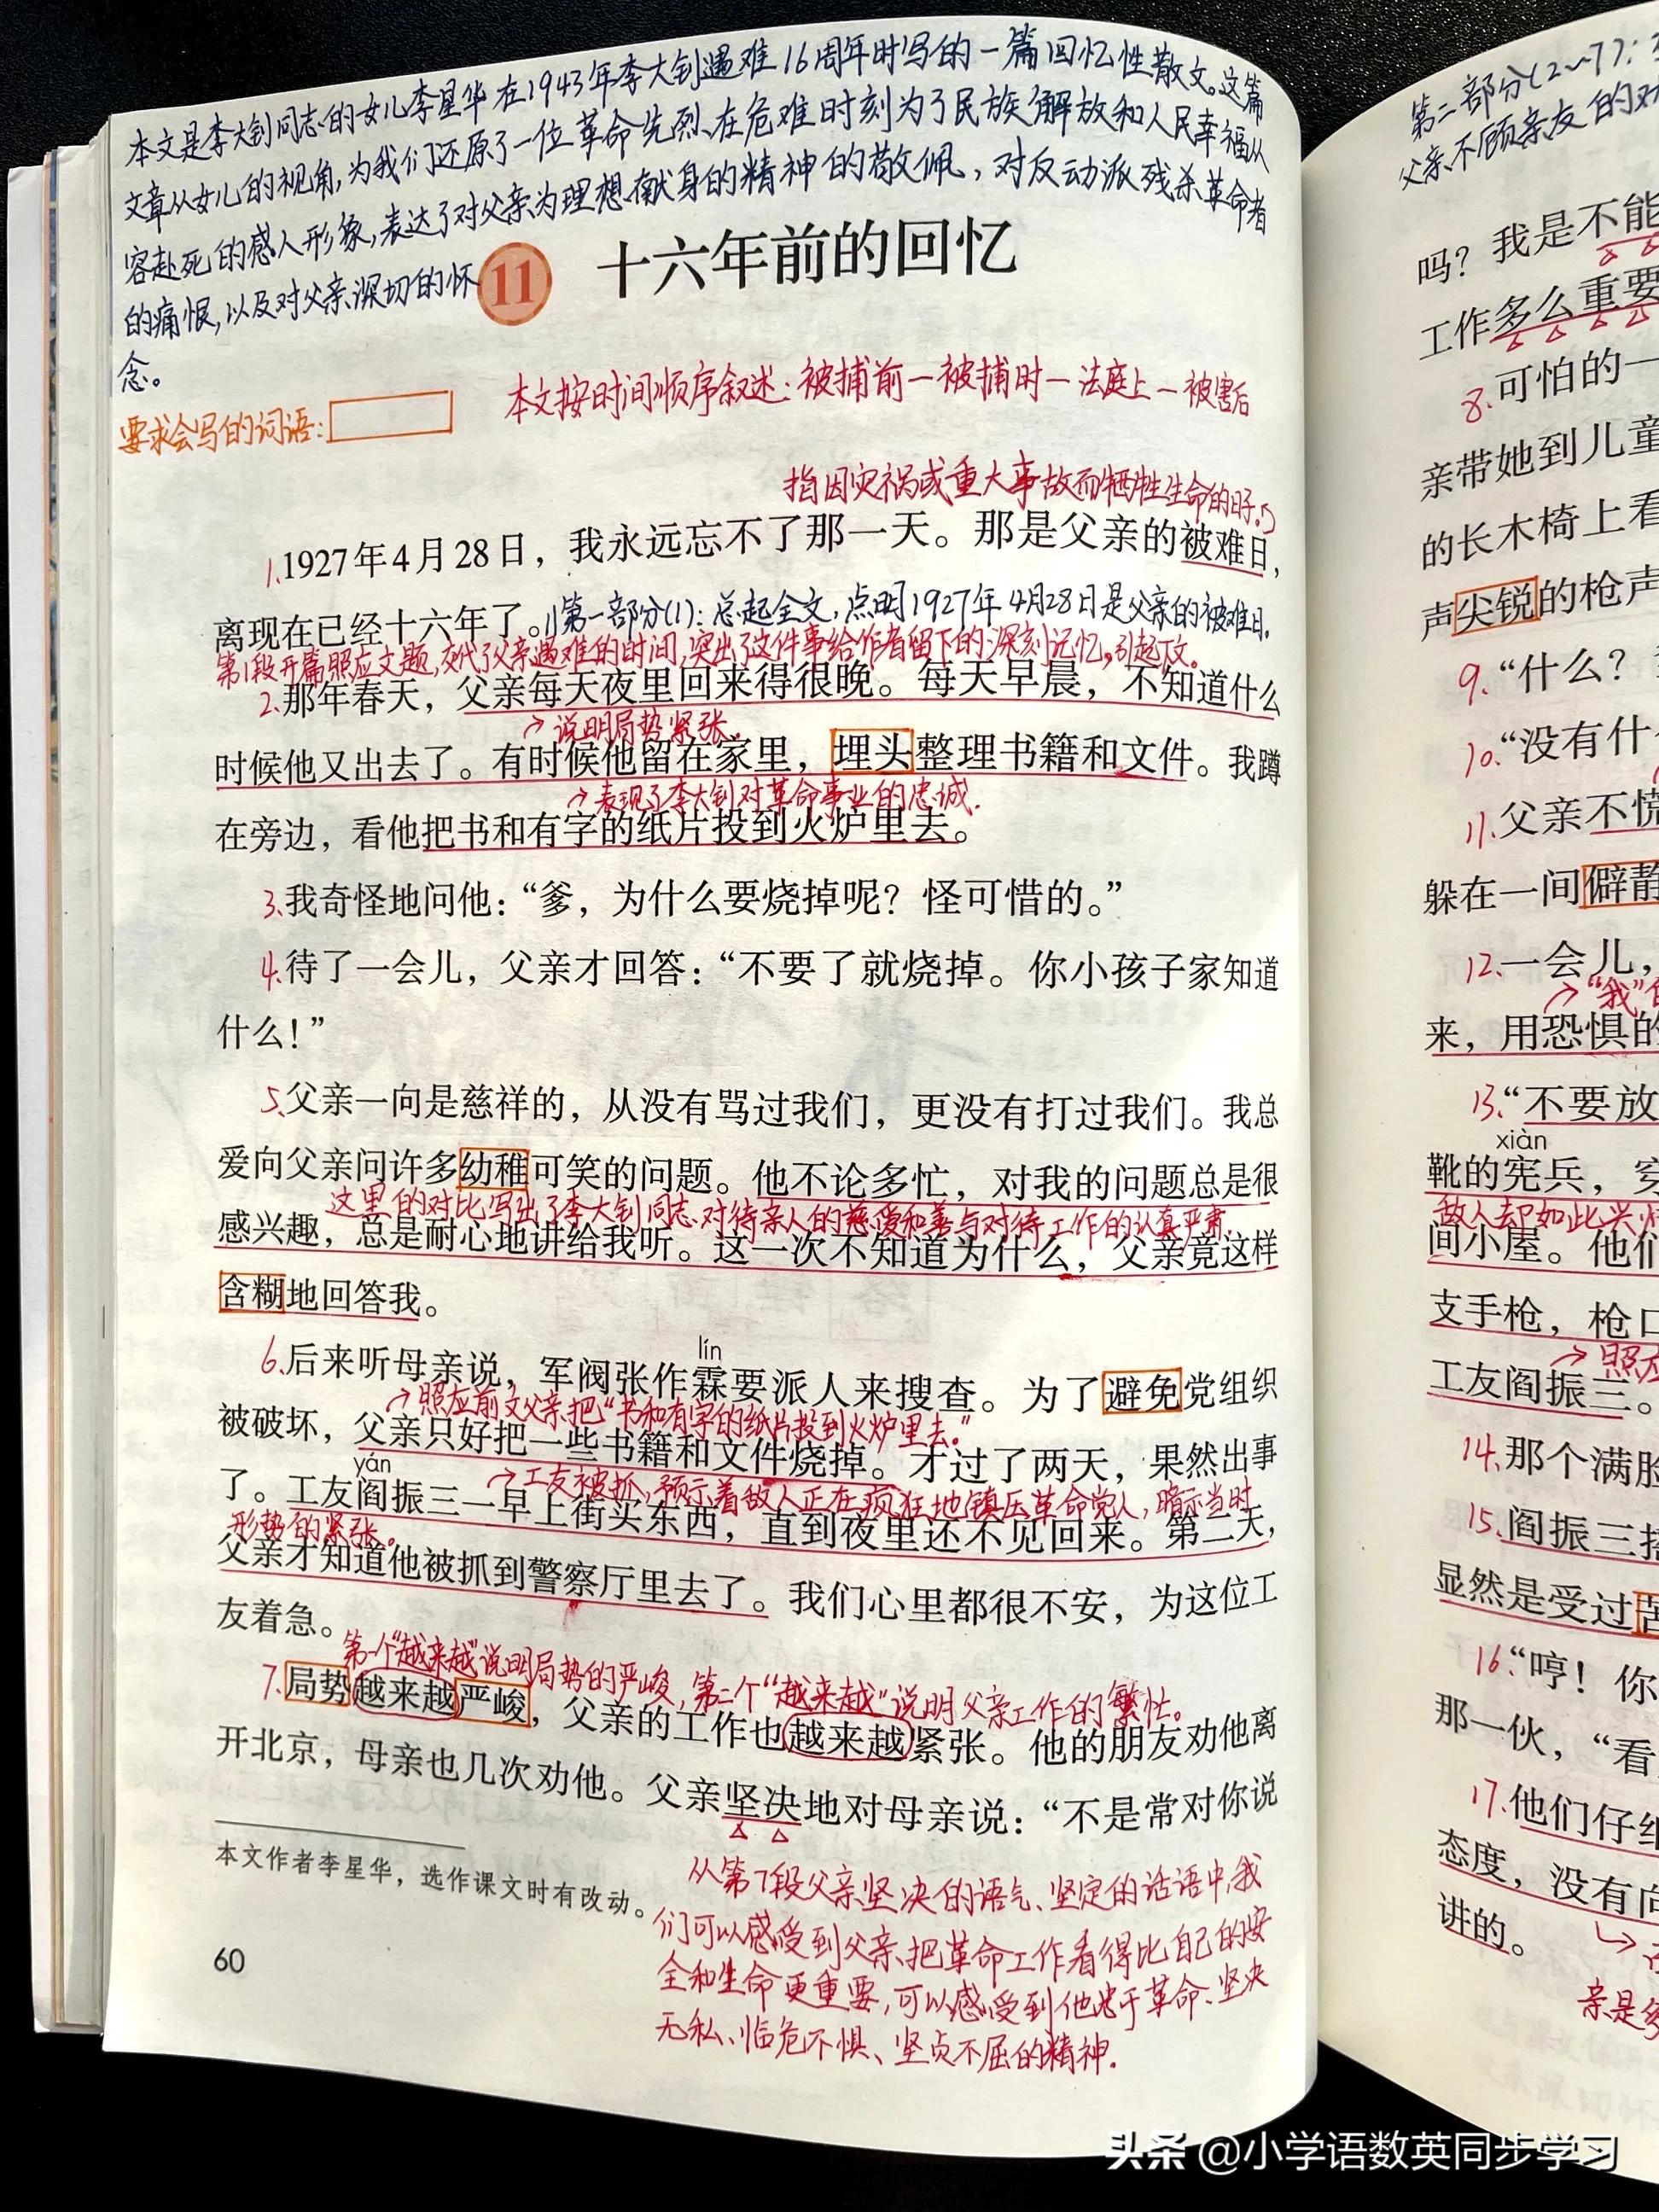 本文是李大钊同志的女儿李星华在1943年李大钊遇难16周年时写的一篇回忆性散文。这篇
文章从女儿的视角,为我们还原了一位革命先烈、在危难时刻为了民族解放和人民幸福从
容赴死的感人形象,表达了对父亲为理想献身的精神的敬佩,对反动派残杀革命者
的痛恨,以及对父亲深切的怀
念。
11 十六年前的回忆
要求会写的词语:
本文按时间顺序叙述:被捕前—被捕时—法庭上—被害后
指因灾祸或重大事故而牺牲生命的日子。
1.1927年4月28日，我永远忘不了那一天。那是父亲的被难日，
离现在已经十六年了。//第一部分(1):总起全文,点明1927年4月28日是父亲的被难日。
第1段开篇照应文题,交代了父亲遇难的时间,突出了这件事给作者留下的深刻记忆,引起下文。
2.那年春天，父亲每天夜里回来得很晚。每天早晨，不知道什么
→说明局势紧张。
时候他又出去了。有时候他留在家里，埋头整理书籍和文件。我蹲
→表现了李大钊对革命事业的忠诚.
在旁边，看他把书和有字的纸片投到火炉里去。
3.我奇怪地问他：“爹，为什么要烧掉呢？怪可惜的。”
4.待了一会儿，父亲才回答：“不要了就烧掉。你小孩子家知道
什么！”
5.父亲一向是慈祥的，从没有骂过我们，更没有打过我们。我总
爱向父亲问许多幼稚可笑的问题。他不论多忙，对我的问题总是很
这里的对比写出了李大钊同志对待亲人的慈爱和善与对待工作的认真严肃.
感兴趣，总是耐心地讲给我听。这一次不知道为什么，父亲竟这样
含糊地回答我。
lín
6.后来听母亲说，军阀张作霖要派人来搜查。为了避免党组织
→照应前文父亲把“书和有字的纸片投到火炉里去。”
被破坏，父亲只好把一些书籍和文件烧掉。才过了两天，果然出事
yán
→工友被抓,预示着敌人正在疯狂地镇压革命党人,暗示当时
了。工友阎振三一早上街头东西，直到夜里还不见回来。第二天，
形势的紧张。
父亲才知道他被抓到警察厅里去了。我们心里都很不安，为这位工
友着急。
第一个“越来越”说明局势的严峻,第二个“越来越”说明父亲工作的繁忙。
7.局势越来越严峻，父亲的工作也越来越紧张。他的朋友劝他离
开北京，母亲也几次劝他。父亲坚决地对母亲说：“不是常对你说
本文作者李星华，选作课文时有改动。
从第7段父亲坚决的语气、坚定的话语中,我
们可以感受到父亲把革命工作看得比自己的安
全和生命更重要,可以感受到他忠于革命、坚决
无私、临危不惧、坚贞不屈的精神.
60
第二部分(2~7):
父亲不顾亲友的劝
吗？我是不能
工作多么重要
8.可怕的一
亲带她到儿童
的长木椅上看
声尖锐的枪声
9.“什么？
10.“没有什
11.父亲不慌
躲在一间僻静
12.一会儿，
→“我”
来，用恐惧的
13.“不要放
xiàn
靴的宪兵，穿
敌人却如此兴
间小屋。他们
支手枪，枪口
→照应
工友阎振三。
14.那个满脸
15.阎振三
显然是受过苦
16.“哼！你
那一伙，“看
17.他们仔细
态度，没有向
讲的。
亲是
头条 @小学语数英同步学习